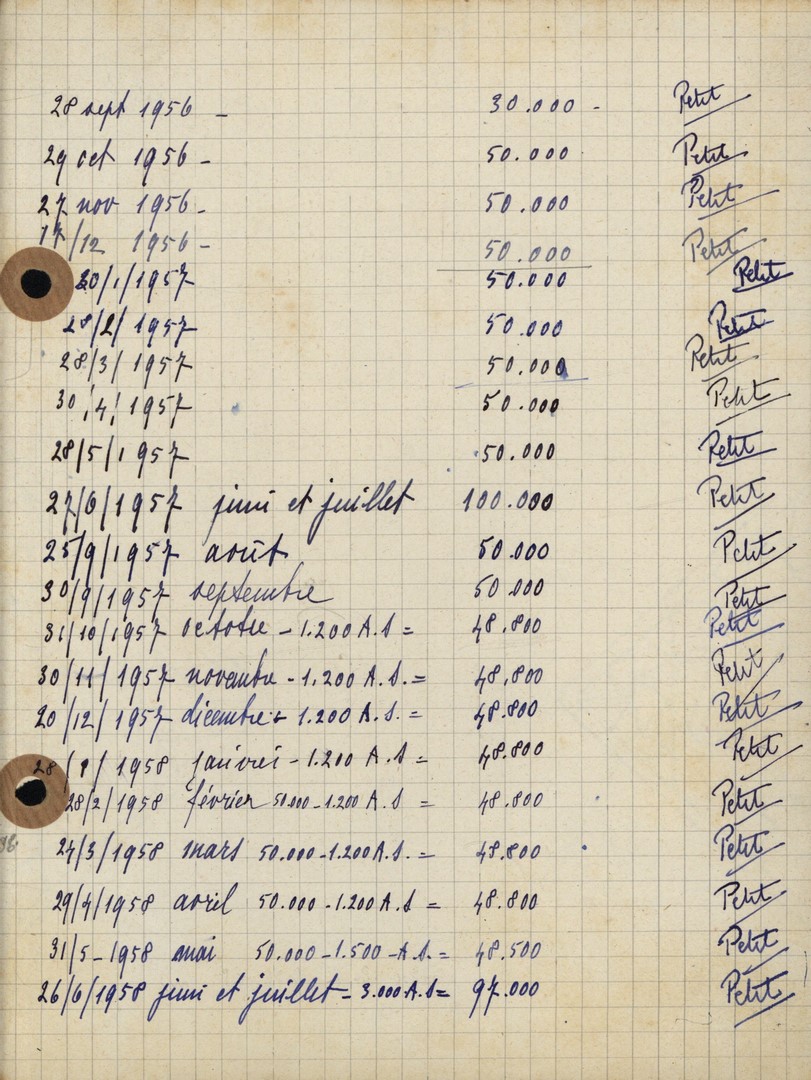 28 sept 1956 - 30.000 - Petit
29 oct 1956 - 50.000 Petit
27 nov 1956 - 50.000 Petit
17/12 1956 - 50.000 Petit
30/1/1957 50.000 Petit
28/2/1957 50.000 Petit
28/3/1957 50.000 Petit
30/4/1957 50.000 Petit
28/5/1957 50.000 Petit
27/6/1957 juin et juillet 100.000 Petit
25/9/1957 août 50.000 Petit
30/9/1957 septembre 50 000 Petit
31/10/1957 octobre - 1.200 A.S = 48.800 Petit
30/11/1957 novembre - 1.200 A.S. = 48.800 Petit
20/12/1957 décembre - 1.200 A.S. = 48.800 Petit
28/1/1958 janvier - 1.200 A.S = 48.800 Petit
28/2/1958 février 50.000 - 1.200 A.S = 48.800 Petit
24/3/1958 mars 50.000 - 1.200 A.S. = 48.800 Petit
29/4/1958 avril 50.000 - 1.200 A.S = 48.800 Petit
31/5-1958 mai 50.000 - 1.500 - A.S. = 48.500 Petit
26/6/1958 juin et juillet - 3.000 A.S = 97.000 Petit